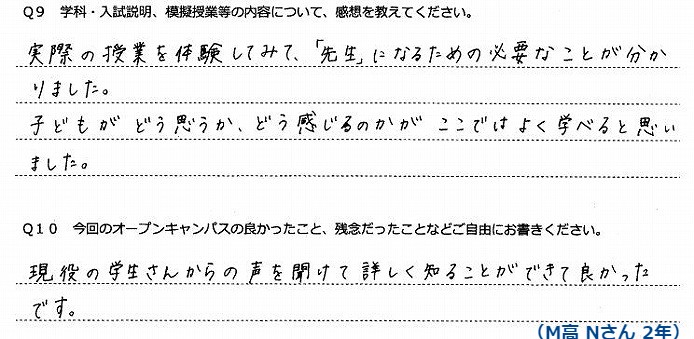 Q9 学科・入試説明、模擬授業等の内容について、感想を教えてください。
実際の授業を体験してみて、「先生」になるための必要なことが分か
りました。
子どもがどう思うか、どう感じるのかがここではよく学べると思い
ました。
Q10 今回のオープンキャンパスの良かったこと、残念だったことなどご自由にお書きください。
現役の学生さんからの声を聞けて詳しく知ることができて良かった
です。
(M高 Nさん 2年)